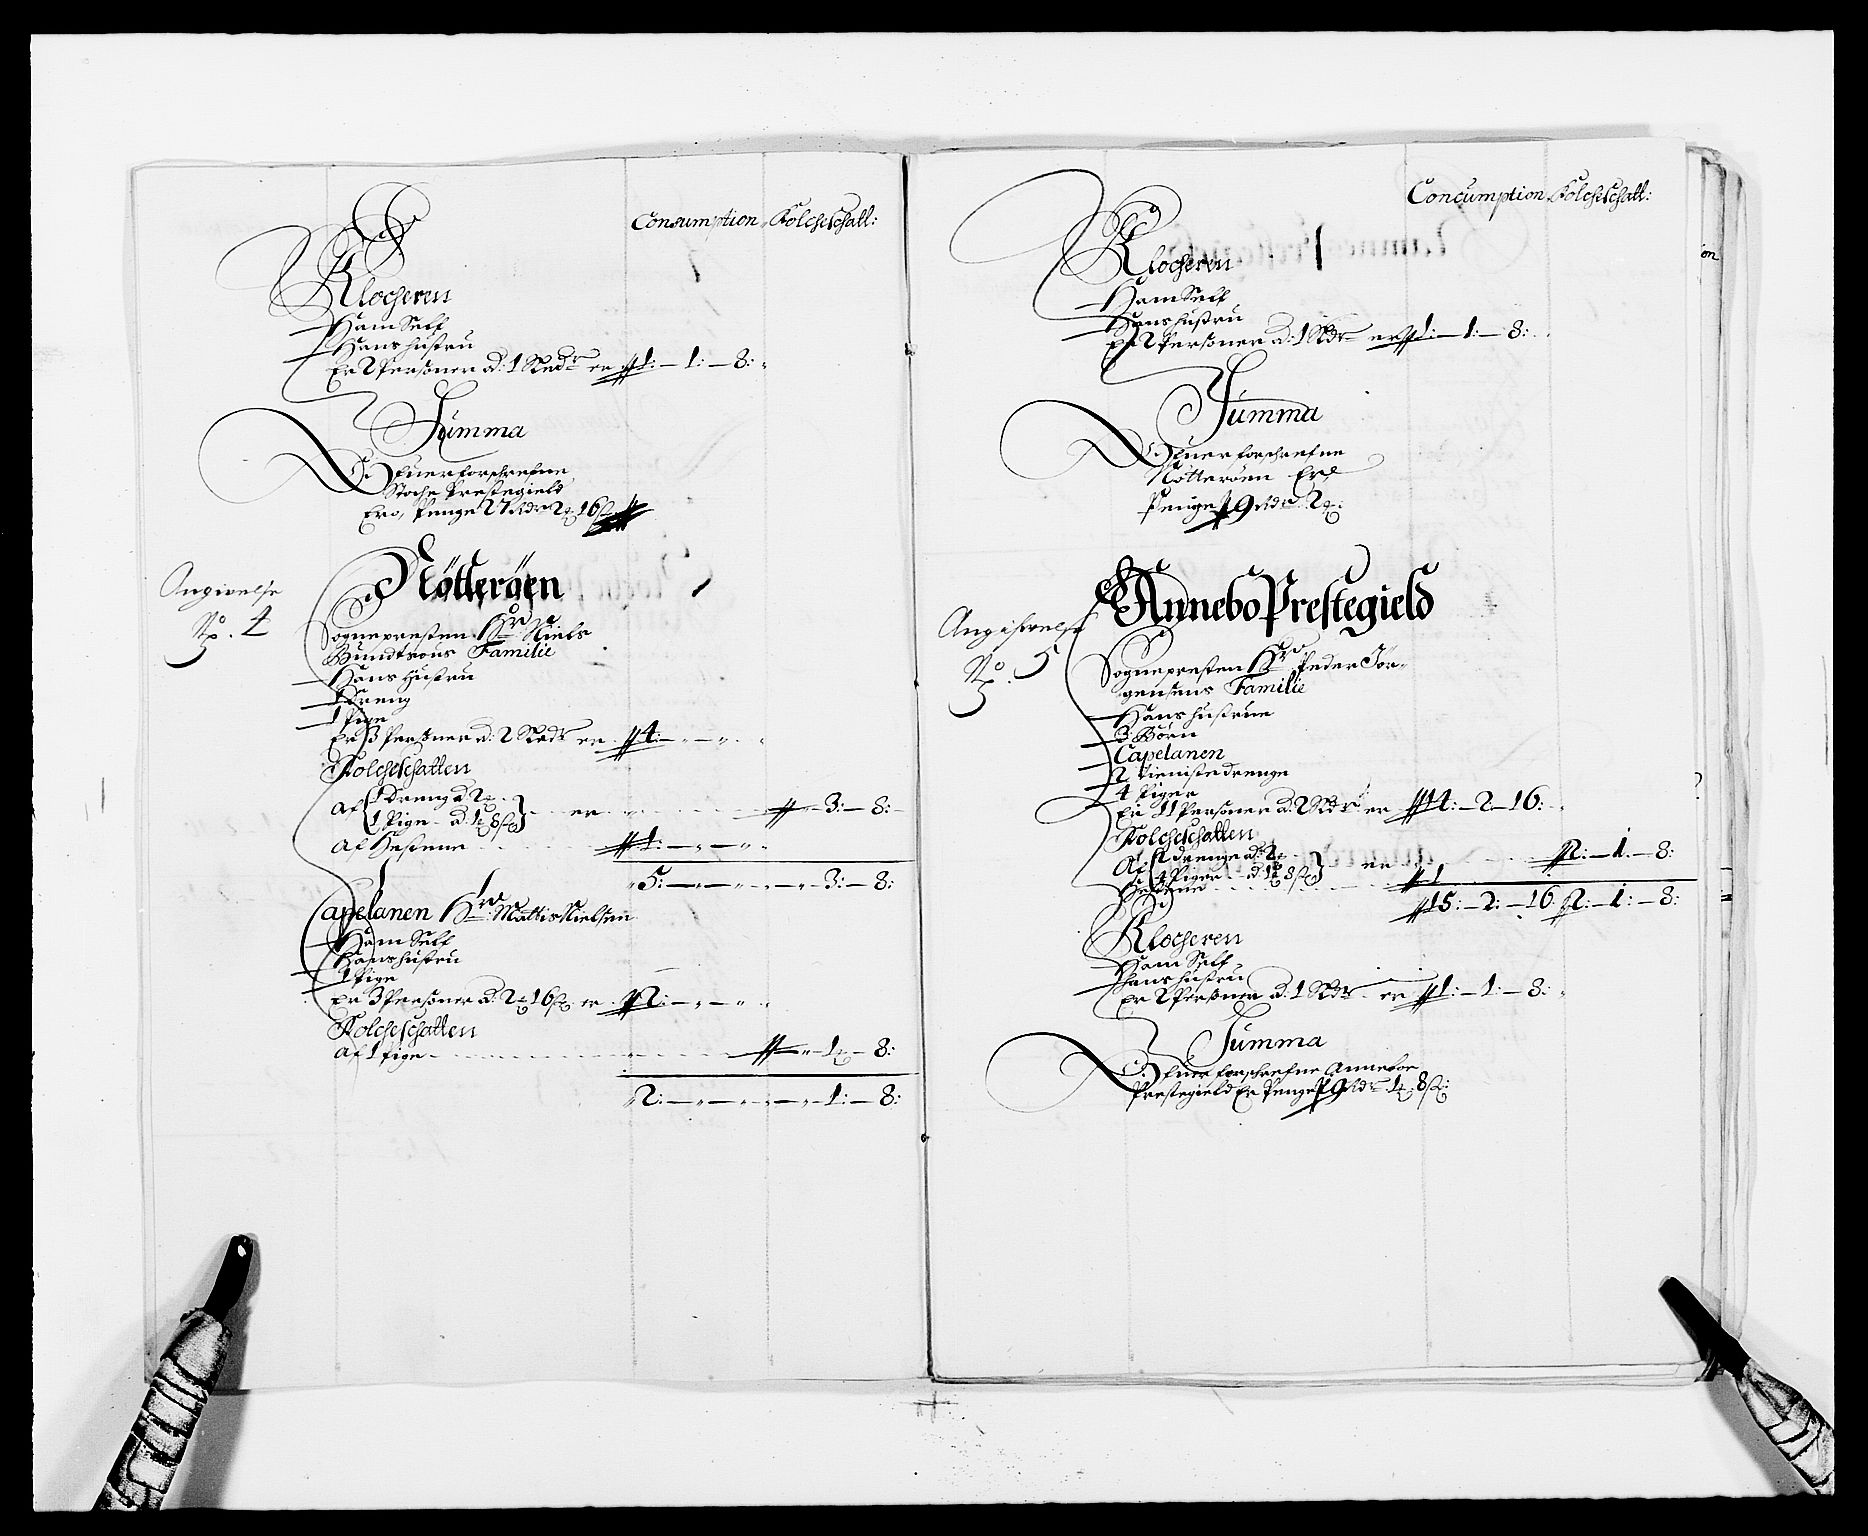 Consumption Folcheschatt:
Klocheren
Ham Self
Hans hustru
Er 2 Personer a: 1 Rdr er 1: — 1: — 8:
Summa
Ofuerforschrefne
Stoche Prestegield
Ero, Penge 27 Rdr 2 16
Angivelse
No. 4
Nötterøen
Sognepresten Hr Niels
Bundtsøns Familie
Hans Hustru
1 Dreng
1 Pige
Er 3 Personer a: 2 Rdr er 4: — „ — „
Folcheschatten
Af 1 Dreng a 2
1 Pige a: 1 8 er 3: — 8:
Af Hestene 1: — „ — „
5: — „ — „ — „ — 3: — 8:
Capelanen Hr: Mattis Nielsen
Ham Self
Hans hustru
1 Pige
Er 3 Personer a: 2 16 er 2: — „ — „
Folcheschatten
Af 1 Pige „ — 1 — 8:
2: — „ — „ — „ — 1: — 8:
Concumption Folcheschatt:
Klocheren
Ham Self
Hans hustru
Er 2 Personer a: 1 Rdr er 1: — 1: — 8:
Summa
Ofuerforschrefne
Nötterøen Ere
Penge 9 Rdr 2
Angifvelse
No. 5
Annebo Prestegield
Sognepresten Hr Peder Jör-
gensens Familie
Hans hustrue
3 Börn
Capelanen
2 tieniste drenge
4 Piger
Er 11 Personer a: 2 Rdr er 14: — 2 — 16:
Folcheschatten
Af 2 drenge a: 2
4 Piger a: 1 8 er 2: — 1. — 8:
Hestene 1
15: — 2: — 16 2: — 1: — 8:
Klocheren
Ham Self
Hans hustru
Er 2 Personer a: 1 Rdr er 1: — 1: — 8:
Summa
Ofuerforschrefne Anneboe
Prestegield Er Penge 19 Rdr 1 8